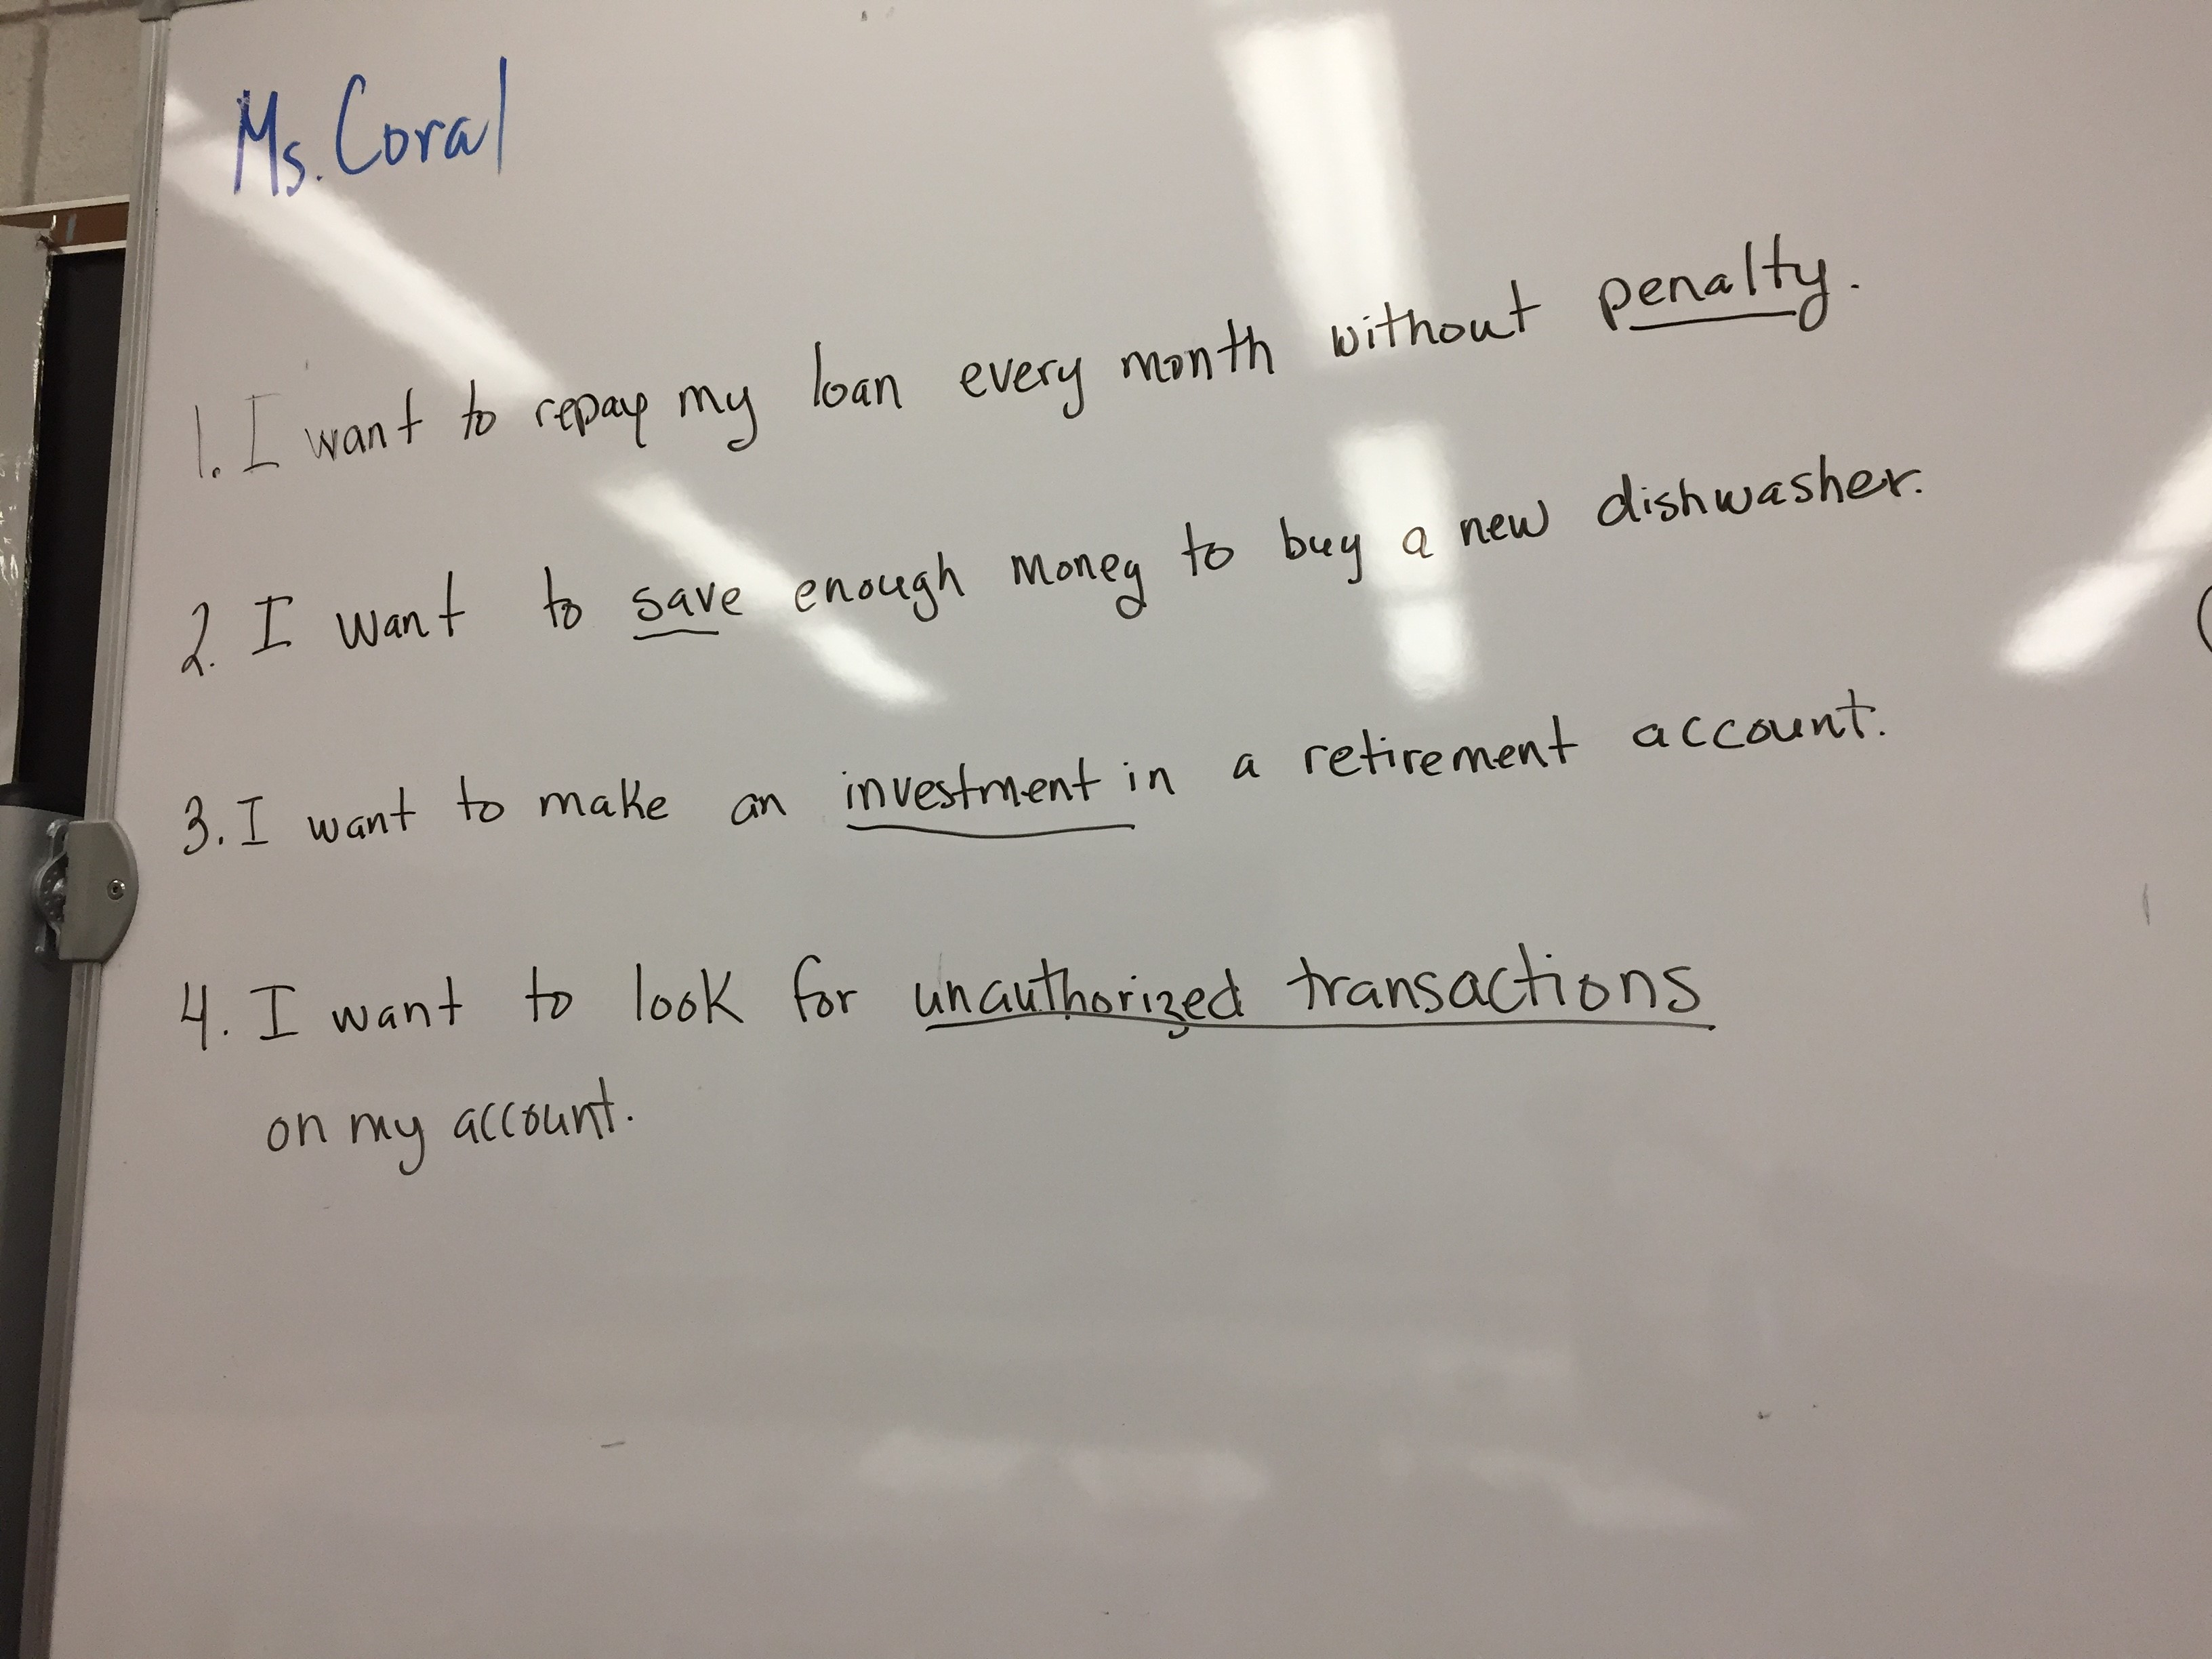 Ms. Coral
1. I want to repay my loan every month without penalty.
2. I want to save enough money to buy a new dishwasher.
3. I want to make an investment in a retirement account.
4. I want to look for unauthorized transactions
on my account.